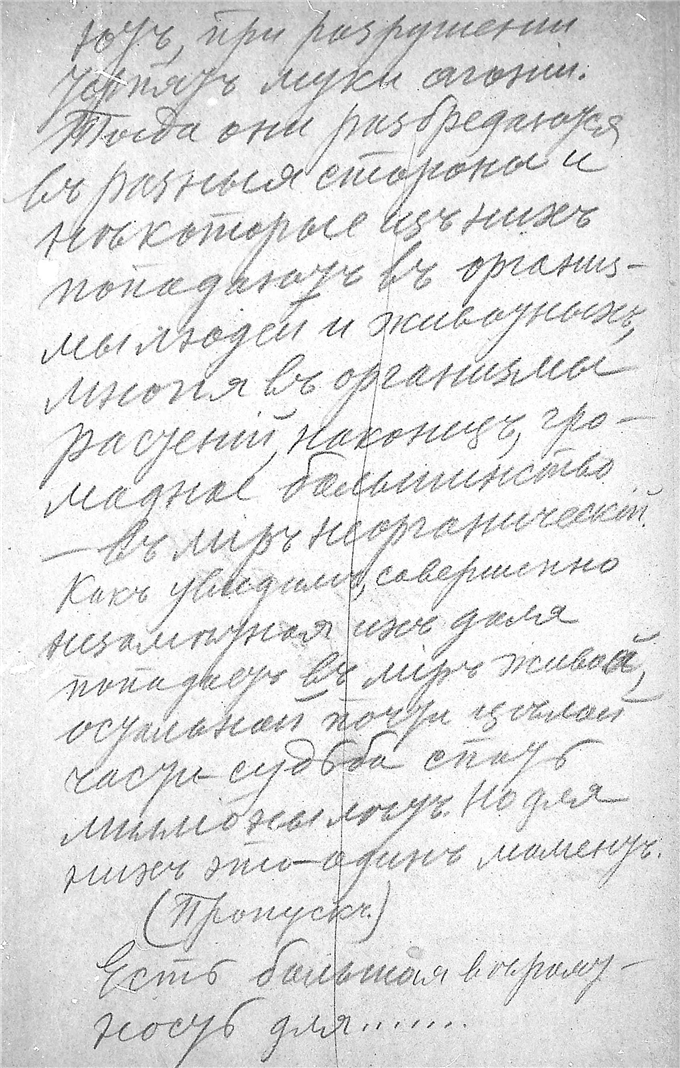 ютъ, при разрушении
терпятъ муки агоніи.
Тогда они разбредаются
въ разныя стороны и
нѣкоторые изъ нихъ
попадаютъ въ организ-
мы людей и животныхъ,
многія въ организмы
растеній, наконецъ, гро-
мадное большинство
— въ міръ неорганическій.
Какъ увидимъ, совершенно
незамѣтная ихъ доля
попадаетъ въ міръ живой,
остальной почти цѣлой
части судьба спать
милліоны лѣтъ. Но для
нихъ это – одинъ моментъ.
(Пропускъ.)
Есть большая вѣроят-
ность для.......